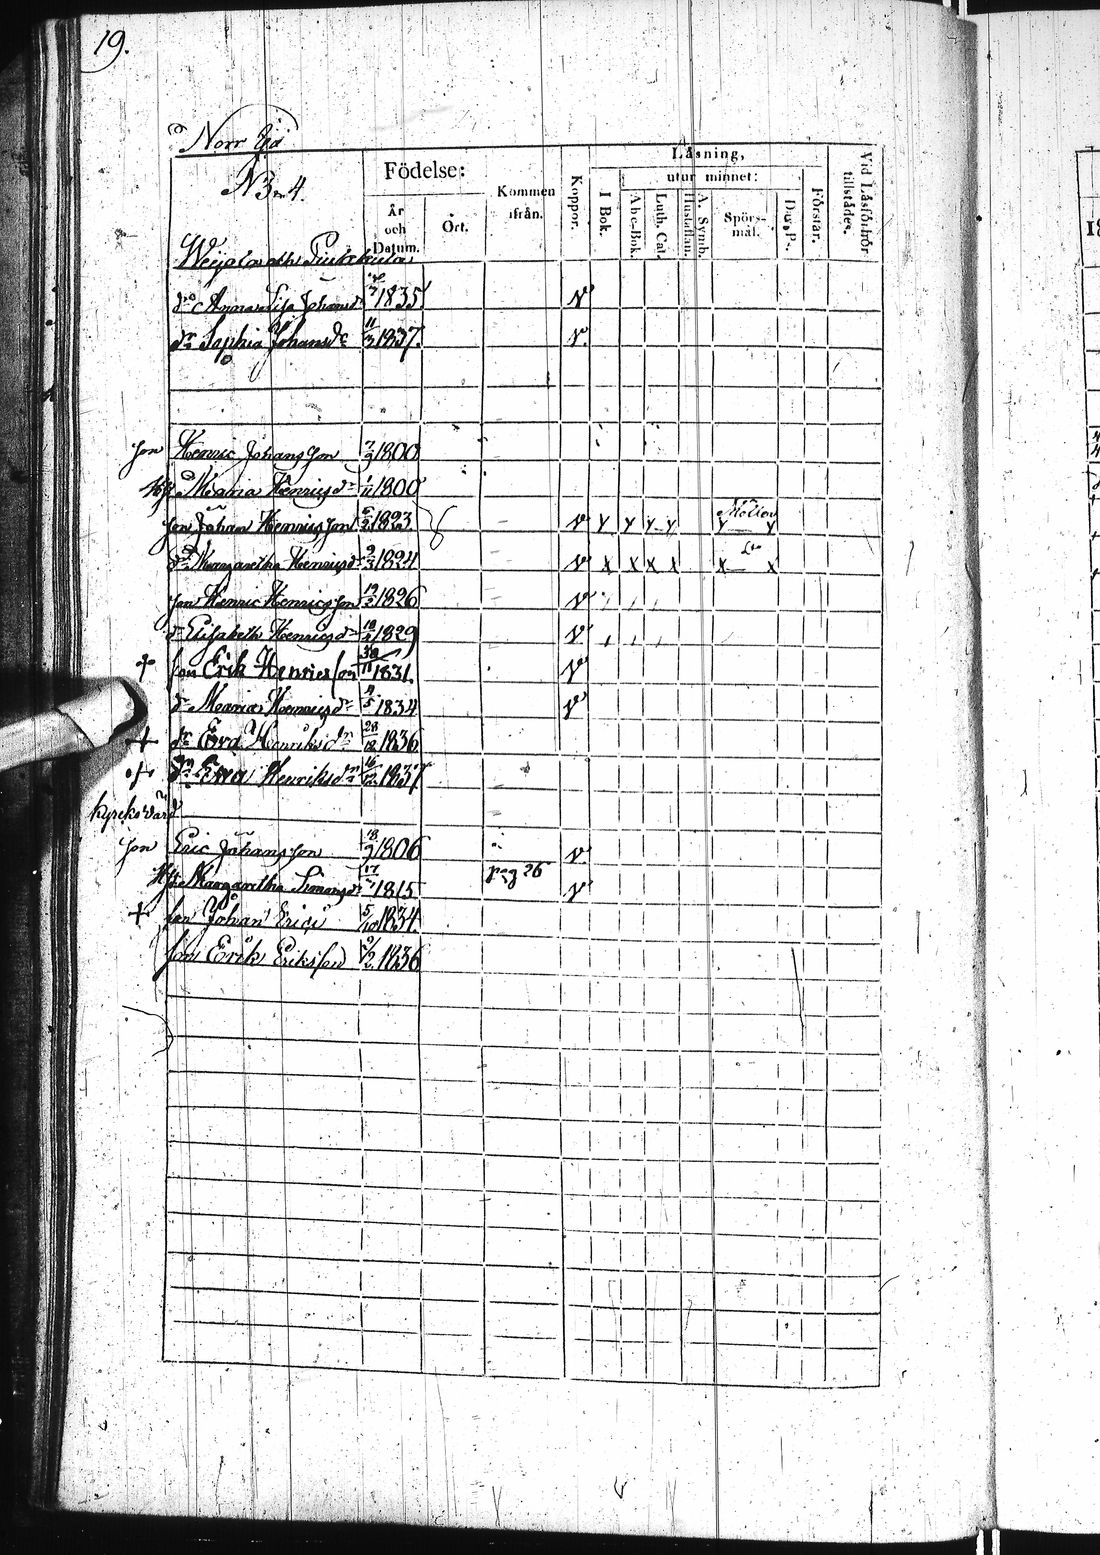 19.
Norr
N 3 4.
Födelse:
År och Datum.
Ort.
Kommen ifrån.
Koppor.
Läsning,
I Bok.
utur minnet:
Abc-Bok.
Luth. Cat.
A. Symb. Hustaflan.
Spörs-mål.
Dav. P.
Förstår.
Vid Läsförhör tillstädes.
dr Anna Lisa Johansdr 1835 v
dr Sophia Johansdr 11/3 1837. v
Son Henric Johansson 7/9 1800
Maria Henricsdr 1/11 1800
son Johan Henricsson 1823 v
dr Margaretha Henricsdr 2/3 1824 v x x x x x x
son Henric Henricsson 19/2 1826 v
dr Elisabeth Henricsdr 18/1 1829 v
+ son Erik Henricsson 30/11 1831. v
dr Maria Henricsdr 4/5 1834 v
+ dr Eva Henriksdr 28/12 1836
+ dr Eva Henriksdr 16/12 1837
kyrkovärd
Son Eric Johansson 18/9 1806 v
Margaretha Simonsdr 17/7 1815 pag 26 v
+ son Johan Erici 5/10 1834.
son Erik Eriksson 1836